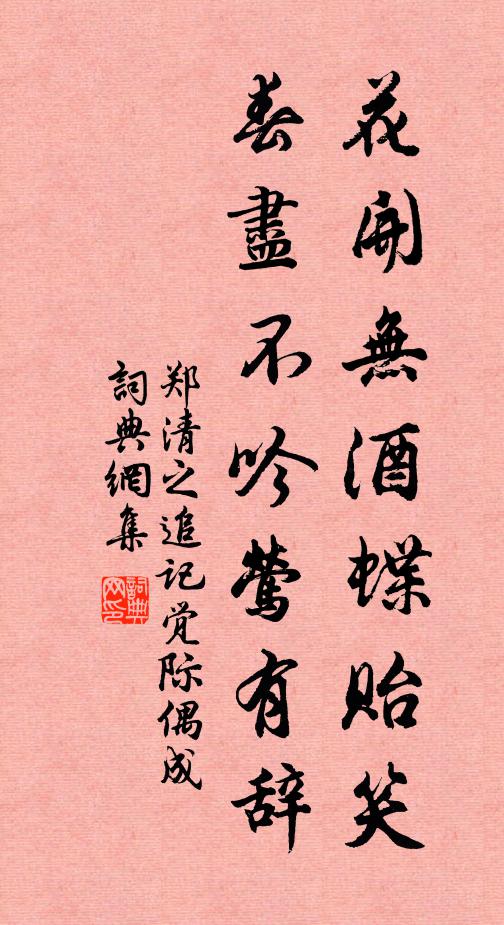 花開無酒蝶貽笑
春盡不吟鶯有辞
郑清之追记觉际偶成
詞典網集
詞典网印